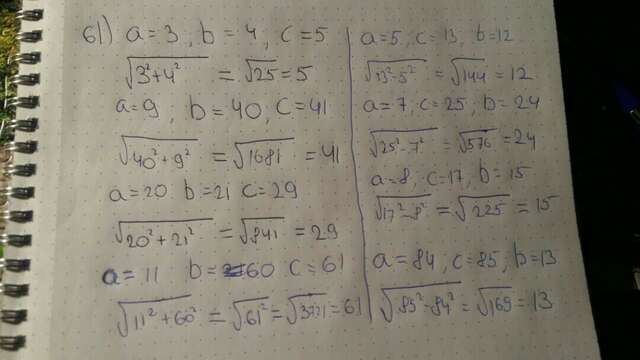 61) a = 3, b = 4, c = 5
√3²+4² = √25 = 5
a = 9, b = 40, c = 41
√40²+9² = √1681 = 41
a = 20 b = 21 c = 29
√20²+21² = √841 = 29
a = 11 b = 60 c = 61
√11²+60² = √61² = √3721 = 61
a = 5, c = 13, b = 12
√13²-5² = √144 = 12
a = 7, c = 25, b = 24
√25²-7² = √576 = 24
a = 8, c = 17, b = 15
√17²-8² = √225 = 15
a = 84, c = 85, b = 13
√85²-84² = √169 = 13